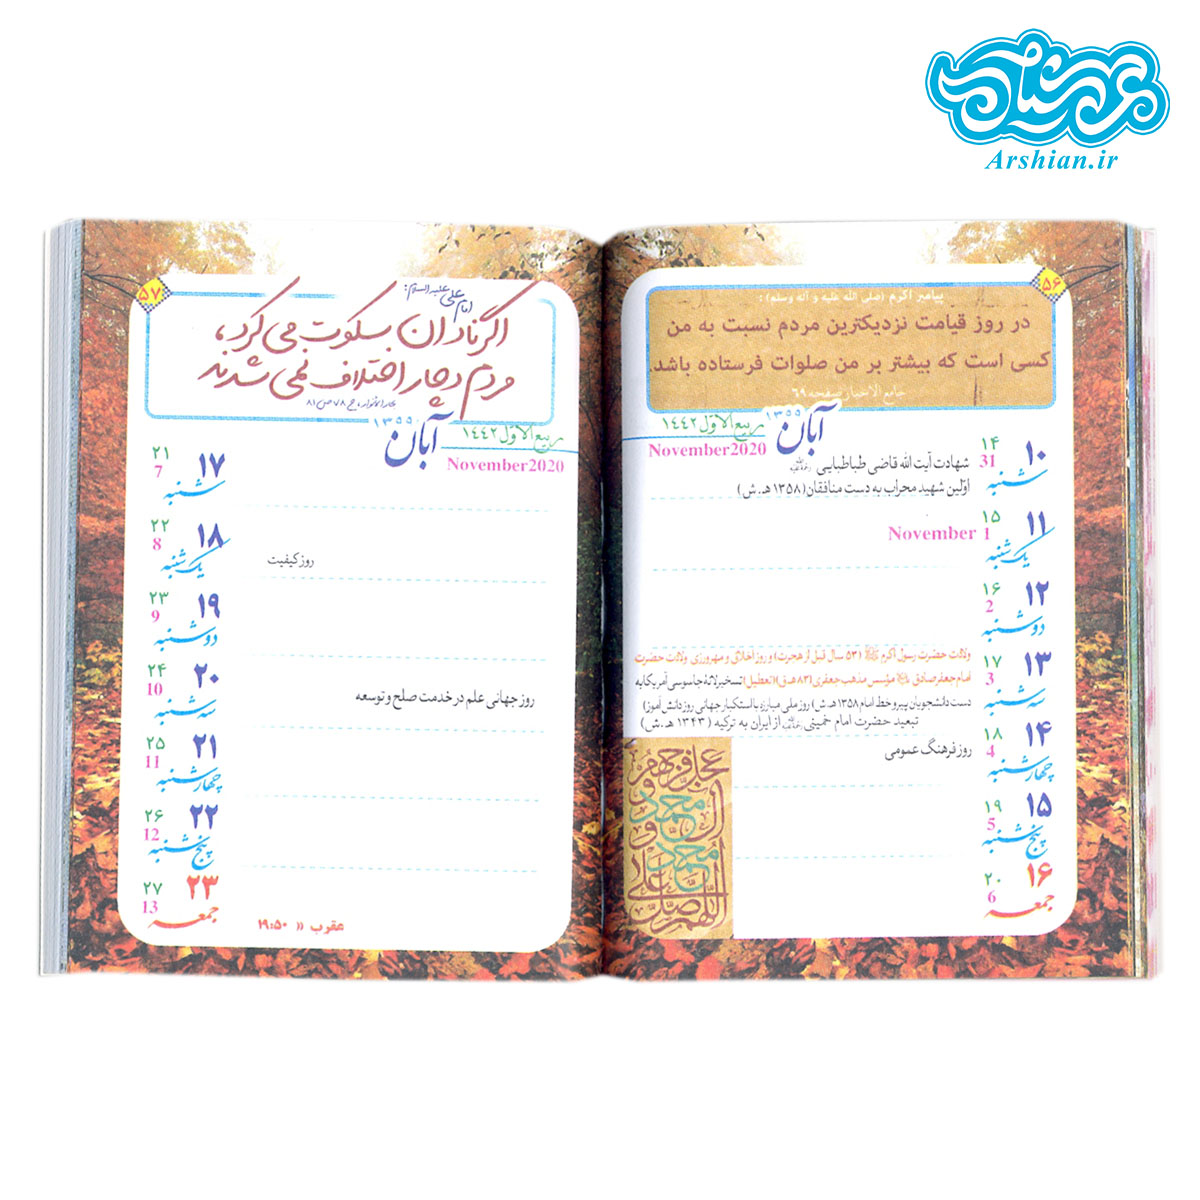 عرشیان
Arshian.ir
۵۶
پیامبر اکرم (صلی الله علیه و آله وسلم) :
در روز قیامت نزدیکترین مردم نسبت به من
کسی است که بیشتر بر من صلوات فرستاده باشد.
جامع الاخبار صفحه ۶۹
آبان ۱۳۵۵
ربیع الاوّل ۱۴۴۲
November 2020
۱۰ شنبه ۱۴ 31
شهادت آیت الله قاضی طباطبایی
اولین شهید محراب به دست منافقان (۱۳۵۸ هـ.ش)
۱۱ یکشنبه ۱۵ 1 November
۱۲ دوشنبه ۱۶ 2
۱۳ سه شنبه ۱۷ 3
ولادت حضرت رسول اکرم ﷺ (۵۳ سال قبل از هجرت) و روز اخلاق و مهرورزی ولادت حضرت
امام جعفر صادق مؤسس مذهب جعفری (۸۳ هـ.ق) (تعطیل) تسخیر لانه جاسوسی آمریکا به
دست دانشجویان پیرو خط امام (۱۳۵۸ هـ.ش) روز ملی مبارزه با استکبار جهانی روز دانش آموز)
تبعید حضرت امام خمینی از ایران به ترکیه (۱۳۴۳ هـ.ش)
۱۴ چهارشنبه ۱۸ 4
روز فرهنگ عمومی
۱۵ پنج شنبه ۱۹ 5
۱۶ جمعه ۲۰ 6
اللهم صل علی
محمد و
آل محمد و
عجل فرجهم
۵۷
امام علی علیه السلام :
اگر نادان سکوت می کرد،
مردم دچار اختلاف نمی شدند
بحارالانوار، ج ۷۸ ص ۸۱
آبان ۱۳۵۵
ربیع الاوّل ۱۴۴۲
November 2020
۱۷ شنبه ۲۱ 7
۱۸ یکشنبه ۲۲ 8
روز کیفیت
۱۹ دوشنبه ۲۳ 9
۲۰ سه شنبه ۲۴ 10
روز جهانی علم در خدمت صلح و توسعه
۲۱ چهارشنبه ۲۵ 11
۲۲ پنج شنبه ۲۶ 12
۲۳ جمعه ۲۷ 13
عقرب » ۱۹:۵۰